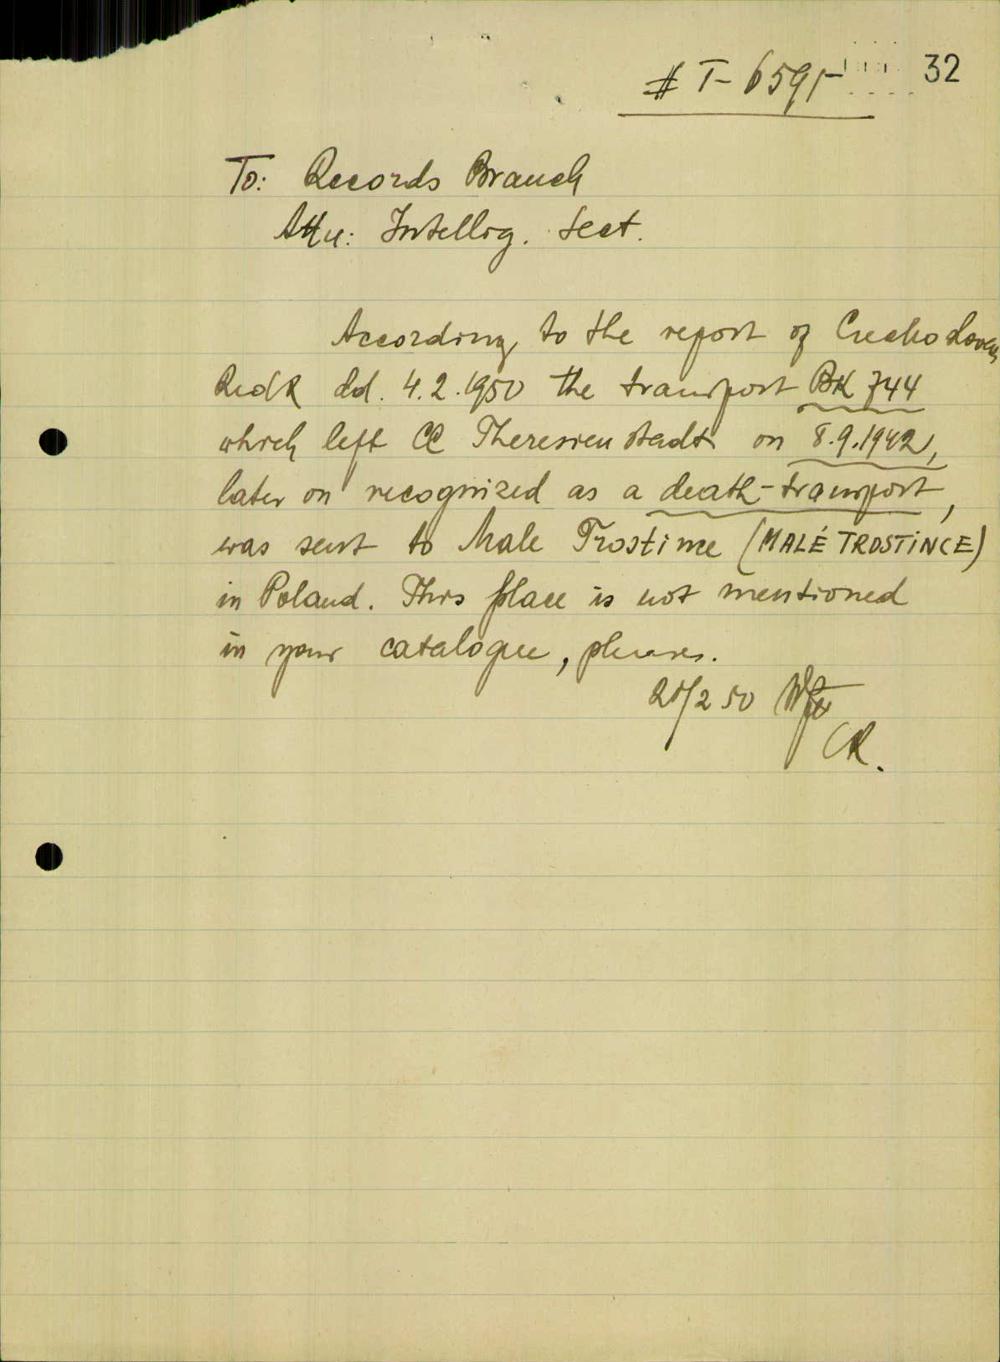 # T- 6591- 32
To: Records Branch
Attn: Intellig. Sect.
According to the report of Czechoslovak
RedX dd. 4.2.1950 the transport BK 744
which left CC Theresienstadt on 8.9.1942,
later on recognized as a death-transport,
was sent to Male Trostince (MALÉ TROSTiNCE)
in Poland. This place is not mentioned
in your catalogue, please.
50
CR.